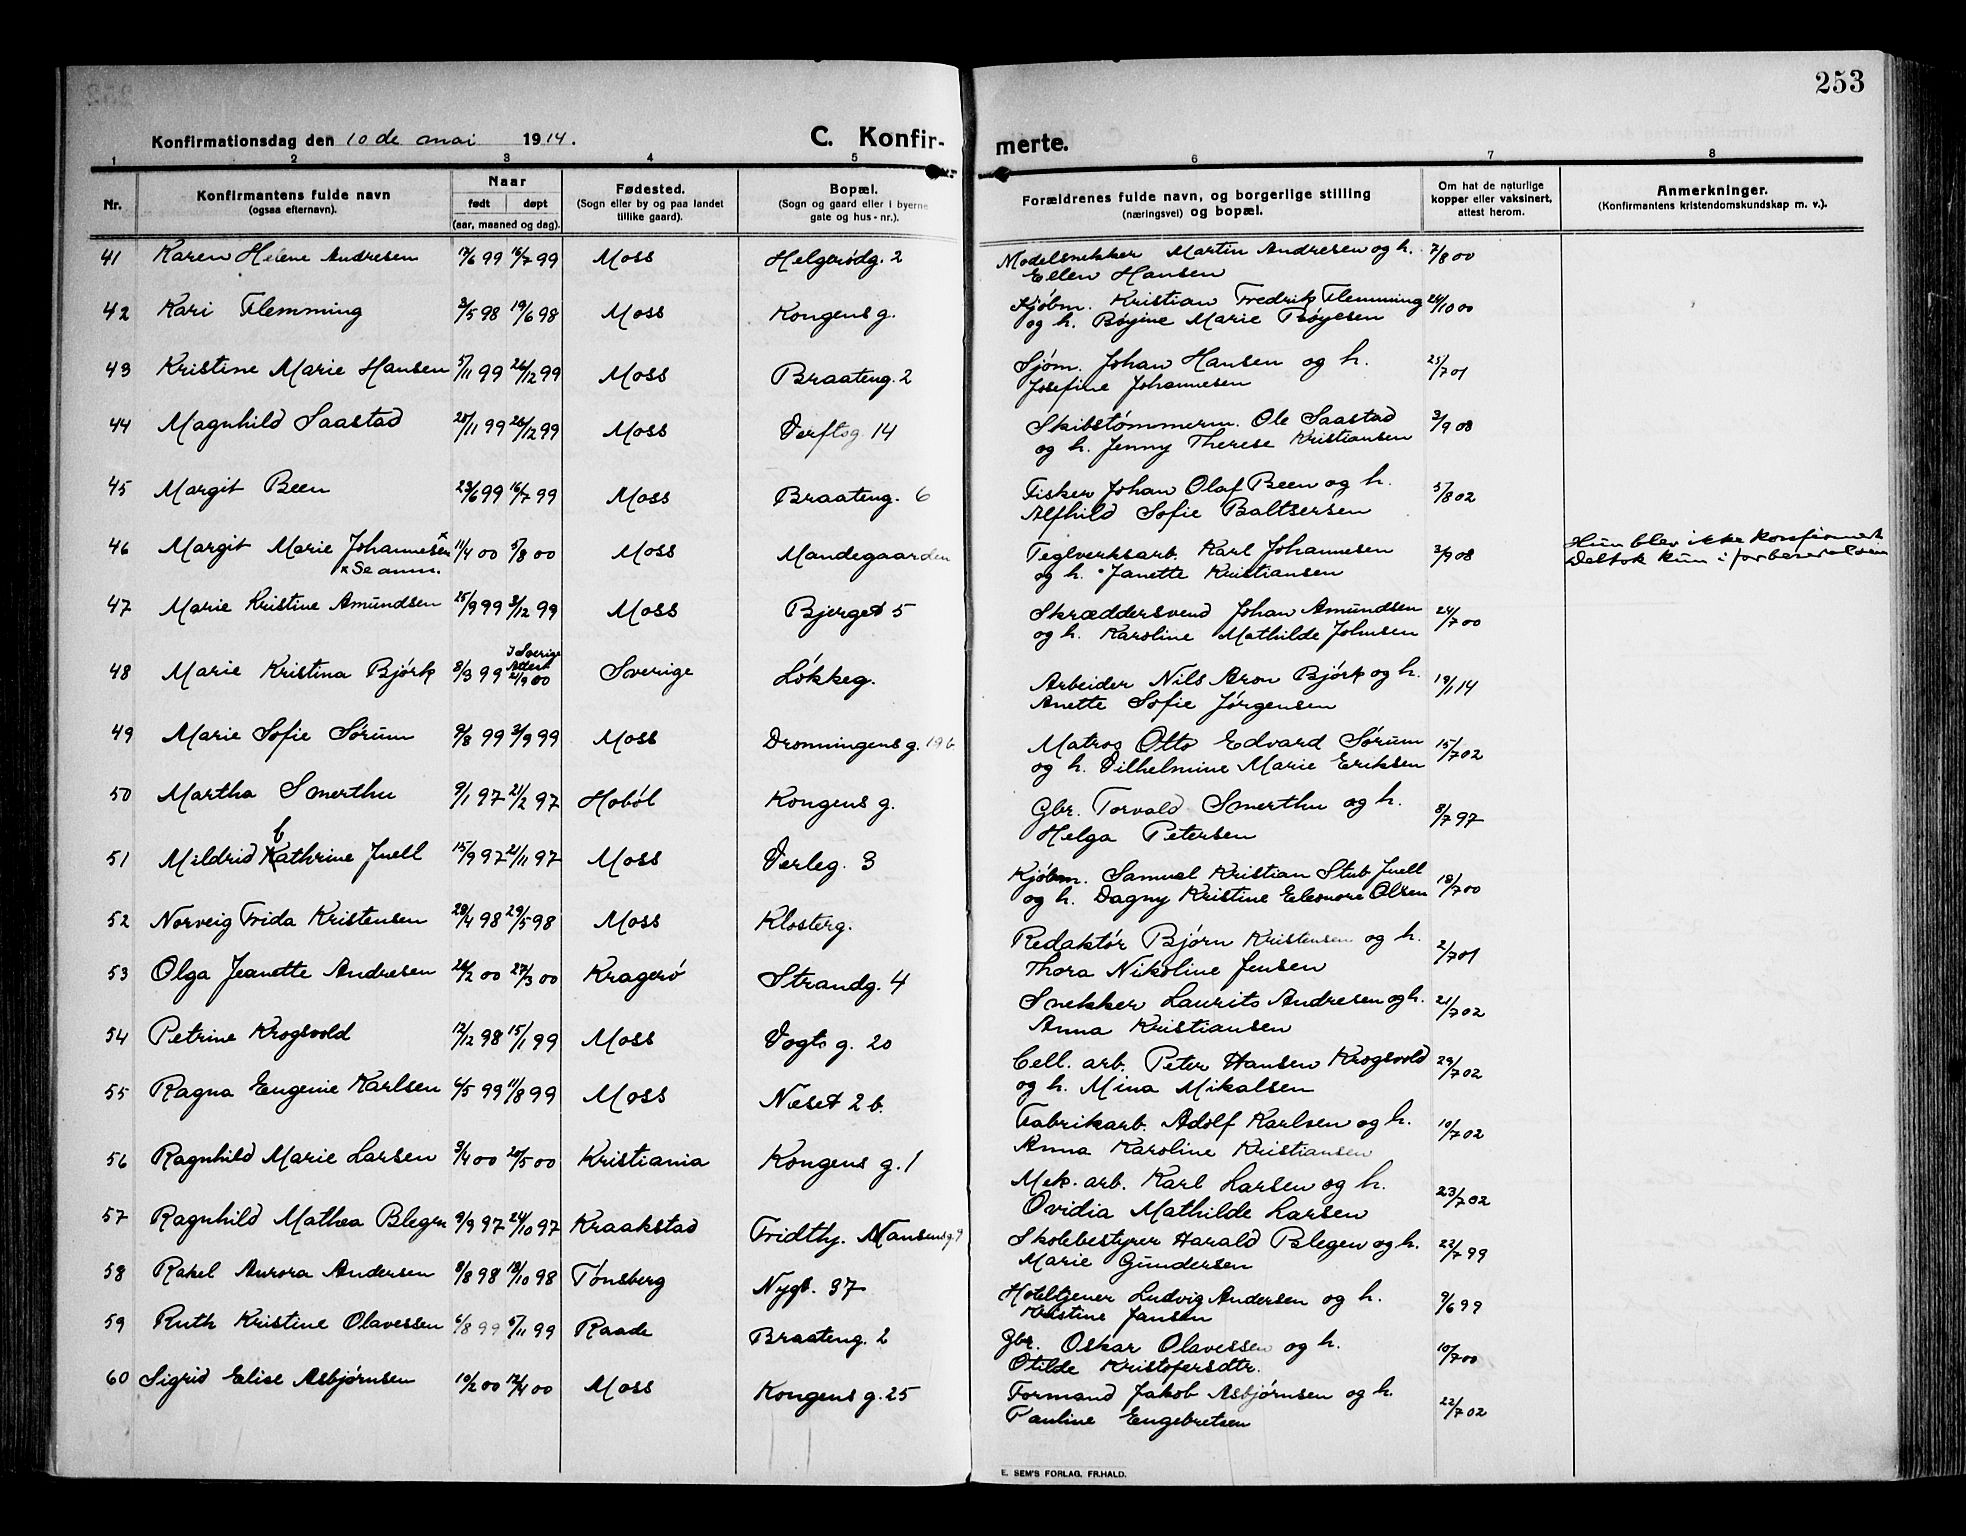 253
Konfirmationsdag den 10 de mai 1914.
C. Konfir-
merte.
1 2 3 4 5 6 7 8
Nr. Konfirmantens fulde navn (ogsaa efternavn). Naar født døpt (aar, maaned og dag). Fødested. (Sogn eller by og paa landet tillike gaard). Bopæl. (Sogn og gaard eller i byerne gate og hus-nr.). Forældrenes fulde navn, og borgerlige stilling (næringsvei) og bopæl. Om hat de naturlige kopper eller vaksinert, attest herom. Anmerkninger. (Konfirmantens kristendomskundskap m. v.).
41 Karen Helene Andresen 17/6 99 16/7 99 Moss Helgerødg. 2 Modelsnekker Martin Andresen og h. 7/8 00
Ellen Hansen
42 Kari Flemming 3/5 98 19/6 98 Moss Kongens g. Kjøbm. Kristian Fredrik Flemming 24/10 00
og h. Bøyine Marie Bøyesen
43 Kristine Marie Hansen 5/11 99 26/12 99 Moss Braateng. 2 Sjøm. Johan Hansen og h. 25/7 01
Josefine Johannesen
44 Magnhild Saastad 25/11 99 26/12 99 Moss Verftsg. 14 Skibstømmerm. Ole Saastad 3/9 08
og h. Jenny Therese Kristiansen
45 Margit Been 23/6 99 16/7 99 Moss Braateng. 6 Fisker Johan Olaf Been og h. 5/8 02
Alfhild Sofie Baltsersen
46 Margit Marie Johannesen x 11/4 00 5/8 00 Moss Mandegaarden Teglverksarb. Karl Johannesen 3/9 08 Hun blev ikke konfirmert
x Se anm. og h. Janette Kristiansen Deltok kun i forberedelsen
47 Marie Kristine Amundsen 25/9 99 3/12 99 Moss Bjerget 5 Skræddersvend Johan Amundsen 24/7 00
og h. Karoline Mathilde Johnsen
48 Marie Kristina Bjørk 8/3 99 I Sverige Attest 21/9 00 Sverige Løkkeg. Arbeider Nils Aron Bjørk og h. 19/1 14
Anette Sofie Jørgensen
49 Marie Sofie Sørum 9/8 99 3/9 99 Moss Dronningens g. 19 b Matros Otto Edvard Sørum 15/7 02
og h. Vilhelmine Marie Eriksen
50 Martha Smerthu 9/1 97 21/2 97 Hobøl Kongens g. Gbr. Torvald Smerthu og h. 8/7 97
Helga Petersen
51 Mildrid Kathrine Juell 15/9 97 21/11 97 Moss Verleg. 3 Kjøbm. Samuel Kristian Stub Juell 18/7 00
og h. Dagny Kristine Eleonore Olsen
52 Norveig Frida Kristensen 28/4 98 29/5 98 Moss Klosterg. Redaktør Bjørn Kristensen og h. 2/7 01
Thora Nikoline Jensen
53 Olga Jeanette Andresen 26/2 00 27/3 00 Kragerø Strandg. 4 Snekker Laurits Andresen og h. 21/7 02
Anna Kristiansen
54 Petrine Krogsvold 17/12 98 15/1 99 Moss Vogts g. 20 Cell. arb. Peter Hansen Krogsvold 29/7 02
og h. Mina Mikalsen
55 Ragna Eugenie Karlsen 6/5 99 11/8 99 Moss Næset 2 b. Fabrikarb. Adolf Karlsen og h. 10/7 02
Anna Karoline Kristiansen
56 Ragnhild Marie Larsen 3/4 00 20/5 00 Kristiania Kongens g. 1 Mek. arb. Karl Larsen og h. 23/7 02
Ovidia Mathilde Larsen
57 Ragnhild Mathea Blegen 9/9 97 24/10 97 Kraakstad Fridthj. Nansens g. 9 Skolebestyrer Harald Blegen og h. 22/7 99
Marie Gundersen
58 Rakel Aurora Andersen 9/8 98 13/10 98 Tønsberg Nygt. 37 Hoteltjener Ludvig Andersen og h. 9/6 99
Kristine Jansen
59 Ruth Kristine Olavessen 6/8 99 5/11 99 Raade Braateng. 2 Gbr. Oskar Olavessen og h. 10/7 00
Otilde Kristofersdtr.
60 Sigrid Elise Asbjørnsen 10/2 00 17/4 00 Moss Kongens g. 25 Formand Jakob Asbjørnsen og h. 22/7 02
Pauline Engebretsen
E. SEM'S FORLAG. FR.HALD.